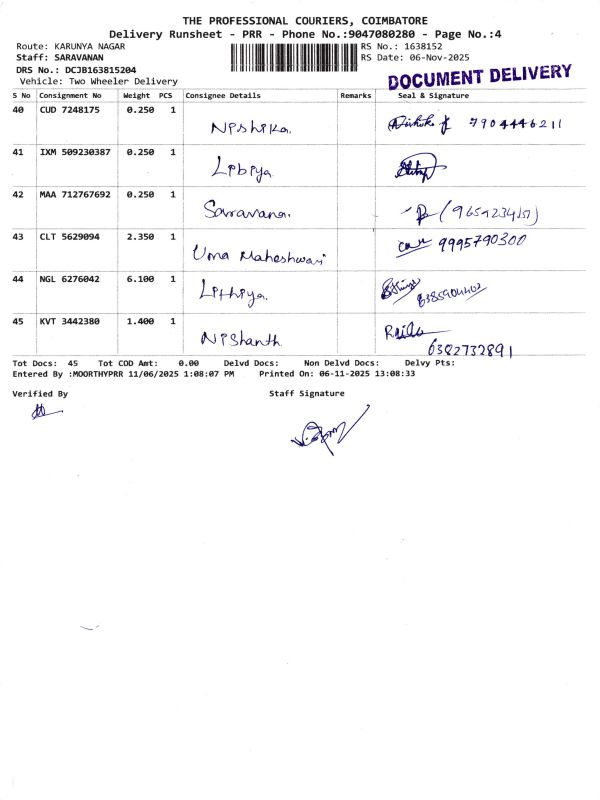 THE PROFESSIONAL COURIERS, COIMBATORE
Delivery Runsheet - PRR - Phone No.:9047080280 - Page No.:4
Route: KARUNYA NAGAR RS No.: 1638152
Staff: SARAVANAN RS Date: 06-Nov-2025
DRS No.: DCJB163815204
Vehicle: Two Wheeler Delivery
DOCUMENT DELIVERY
S No Consignment No Weight PCS Consignee Details Remarks Seal & Signature
40 CUD 7248175 0.250 1 Nishika. 7904446211
41 IXM 509230387 0.250 1 Libiya
42 MAA 712767692 0.250 1 Saravana.
43 CLT 5629094 2.350 1 Uma Maheshwari 9995790300
44 NGL 6276042 6.100 1 Lithiya.
45 KVT 3442380 1.400 1 Nishanth 6382732891
Tot Docs: 45 Tot COD Amt: 0.00 Delvd Docs: Non Delvd Docs: Delvy Pts:
Entered By :MOORTHYPRR 11/06/2025 1:08:07 PM Printed On: 06-11-2025 13:08:33
Verified By Staff Signature